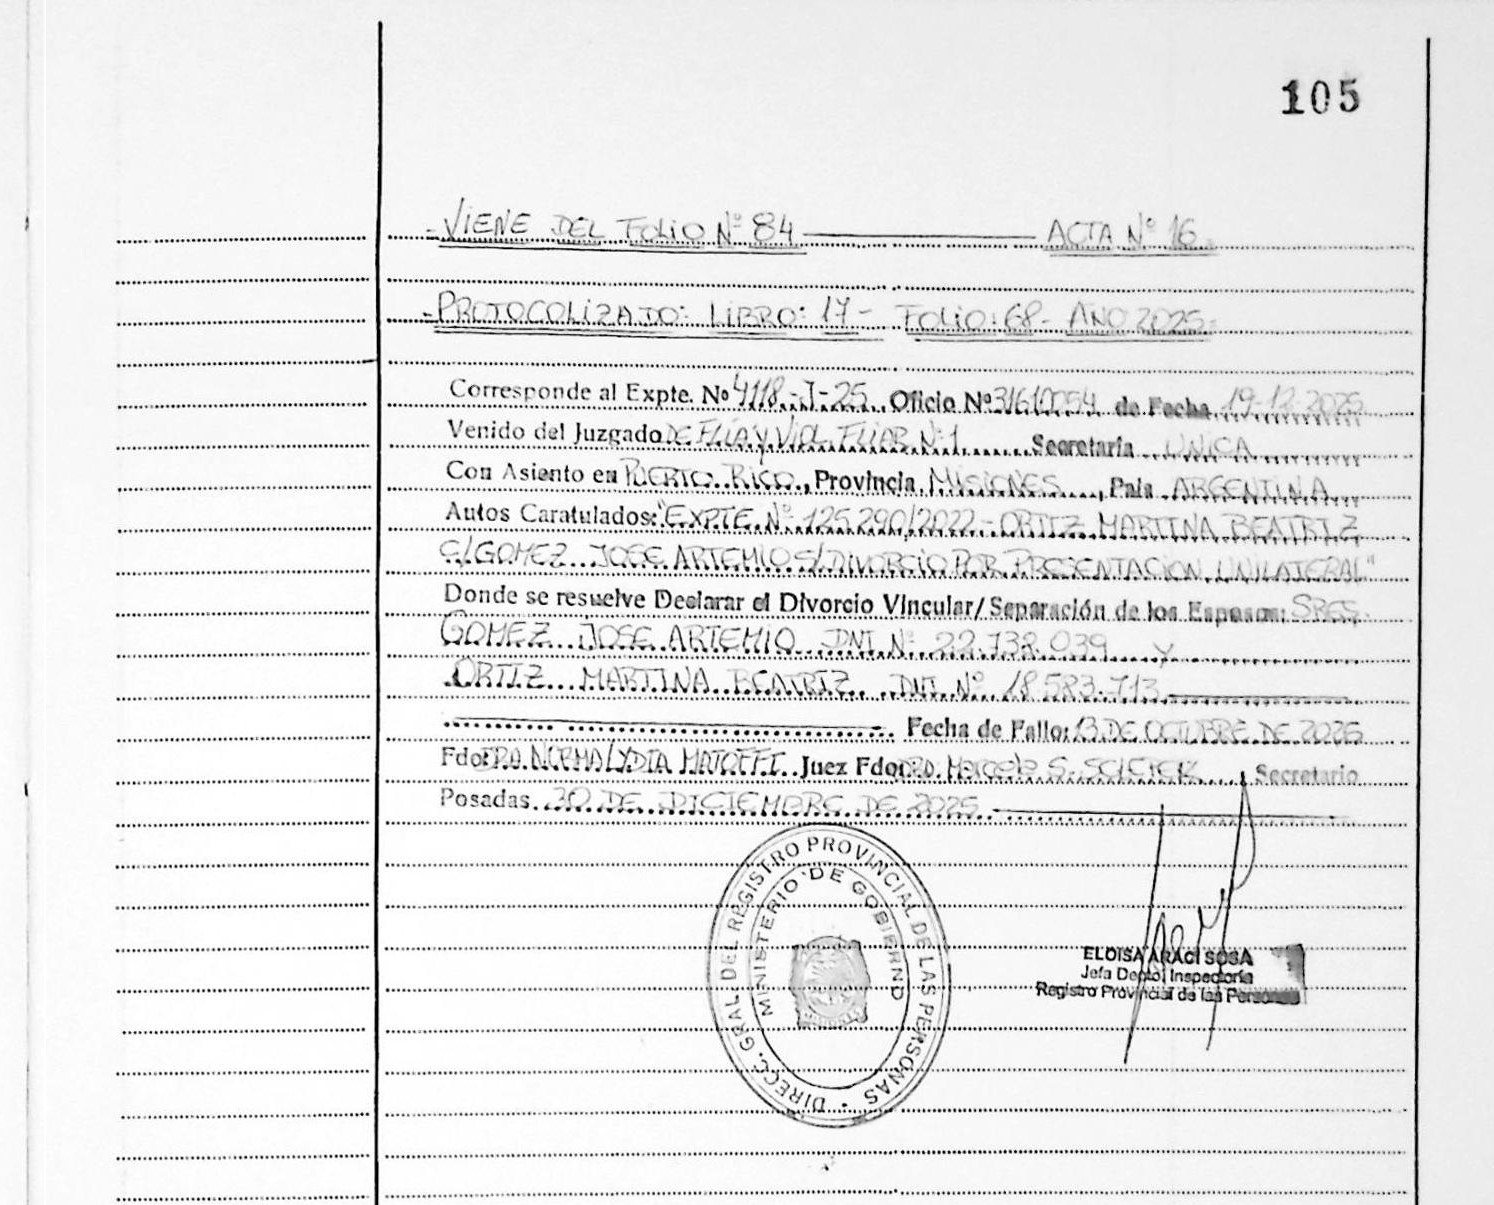 105
-VIENE DEL FOLIO Nº 84 ACTA Nº 16.
-PROTOCOLIZADO: LIBRO: 17- FOLIO: 68- AÑO 2025-
Corresponde al Expte. Nº 4118-J-25. Oficio Nº de Fecha 19-12-2025
Venido del Juzgado DE FLIA Y VIOL. FLIAR Nº 1 Secretaria UNICA
Con Asiento en PUERTO RICO, Provincia MISIONES, Pais ARGENTINA
Autos Caratulados: "EXPTE. Nº 125.290/2022-ORTIZ MARTINA BEATRIZ
C/GOMEZ JOSE ARTEMIO S/DIVORCIO POR PRESENTACION UNILATERAL"
Donde se resuelve Declarar el Divorcio Vincular/Separación de los Esposos: SRES.
GOMEZ JOSE ARTEMIO DNI Nº 22.738.039 y
ORTIZ MARTINA BEATRIZ DNI Nº 18.583.713
Fecha de Fallo: 13 DE OCTUBRE DE 2025
Fdo: DRA. NORMA LYDIA Juez Fdo: Marcela S. Secretario
Posadas. 30 DE DICIEMBRE DE 2025.
DIRECC. GRAL. DEL REGISTRO PROVINCIAL DE LAS PERSONAS
MINISTERIO DE GOBIERNO
ELOISA ARACI SOSA
Jefa Depto. Inspectoría
Registro Provincial de las Personas